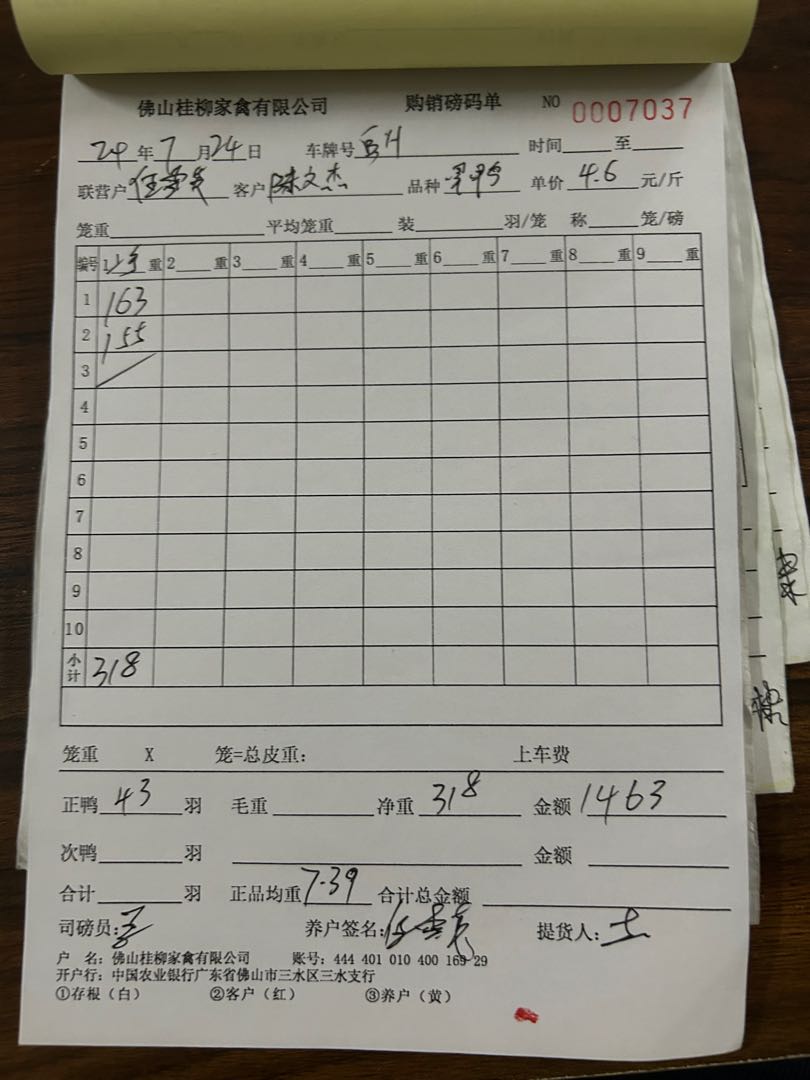 佛山桂柳家禽有限公司 购销磅码单 NO 0007037
24年7月24日 车牌号 时间 至
联营户 客户 陈文杰 品种 单价 4.6 元/斤
笼重 平均笼重 装 羽/笼 称 笼/磅
编号 1 重 2 重 3 重 4 重 5 重 6 重 7 重 8 重 9 重
1 163
2 155
3
4
5
6
7
8
9
10
小计 318
笼重 X 笼=总皮重: 上车费
正鸭 43 羽 毛重 净重 318 金额 1463
次鸭 羽 金额
合计 羽 正品均重 7.39 合计总金额
司磅员: 养户签名: 提货人:
户 名: 佛山桂柳家禽有限公司 账号: 444 401 010 400 169 29
开户行: 中国农业银行广东省佛山市三水区三水支行
①存根(白) ②客户(红) ③养户(黄)